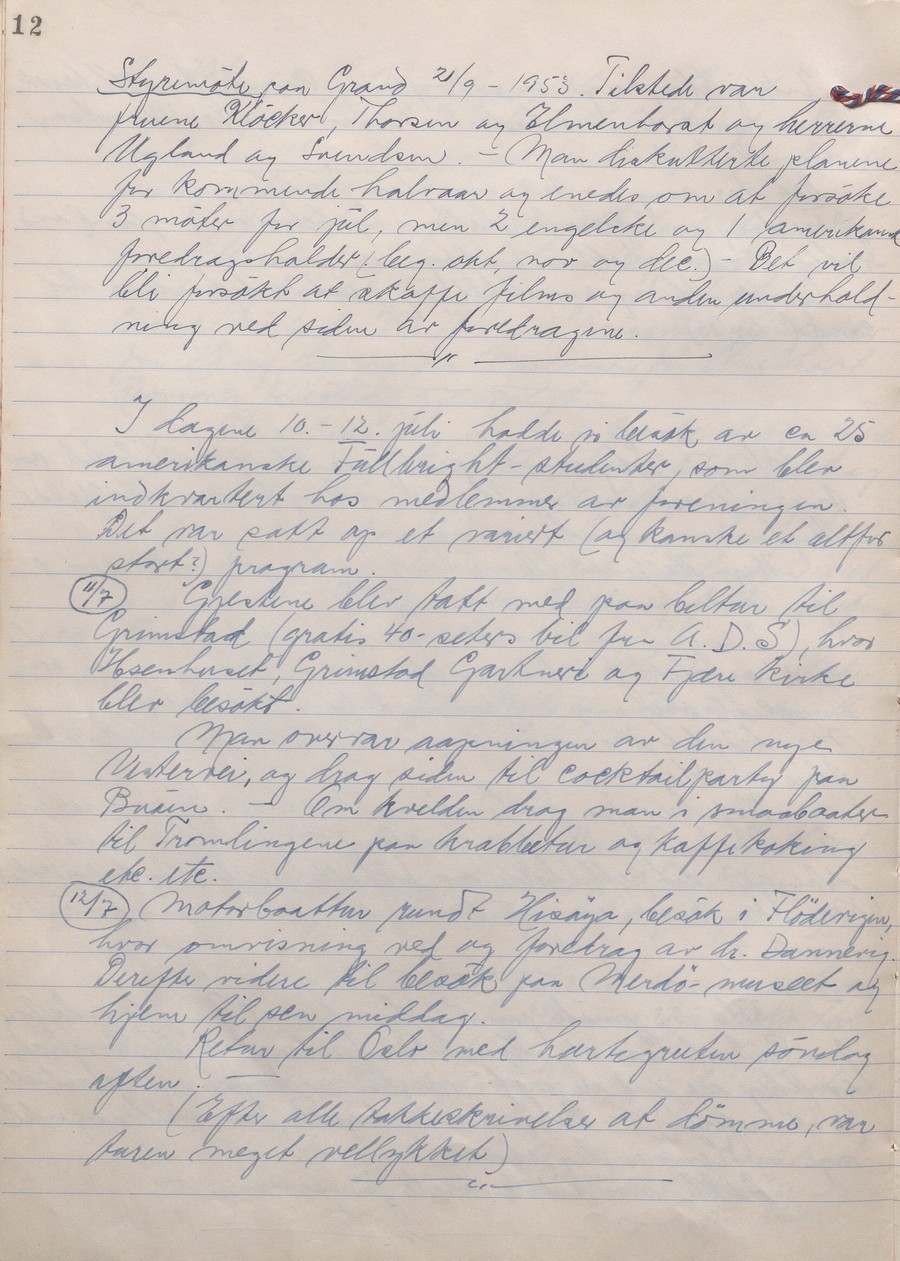 12
Styremöte paa Grand 21/9 - 1953. Tilstede var
fruene Klöcker, Thorsen og Elmenhorst og herrerne
Ugland og Svendsen. - Man diskutterte planene
for kommende halvaar og enedes om at forsöke
3 möter för jul, men 2 engelske og 1 amerikansk
foredragsholder (beg. okt, nov og dec.) - Det vil
bli forsökt at skaffe films og anden underhold-
ning ved siden av foredragene.
I dagene 10. - 12. juli hadde vi besök av ca 25
amerikanske Fullbright-studenter, som blev
indkvartert hos medlemmer av foreningen.
Det var satt op et variert (og kanske et altfor
stort?) program.
11/7 Gjestene blev tatt med paa biltur til
Grimstad (gratis 40-seters bil fra A.D.S), hvor
Ibsenhuset, Grimstad Gartneri og Fjære Kirke
blev besökt.
Man overvar aapningen av den nye
Vestervei, og drog siden til cocktailparty paa
. - Om kvelden drog man i smaabaater
til Tromlingene paa krabbetur og kaffekoking
etc. etc.
12/7 Motorbaattur rundt Hisöya, besök i Flödevigen,
hvor omvisning ved og foredrag av dr. Dannevig.
Derefter videre til besök paa Merdö-museet og
hjem til sen middag.
Retur til Oslo med hurtigruten söndag
aften. -
(Efter alle takkeskrivelser at dömme, var
turen meget vellykket)